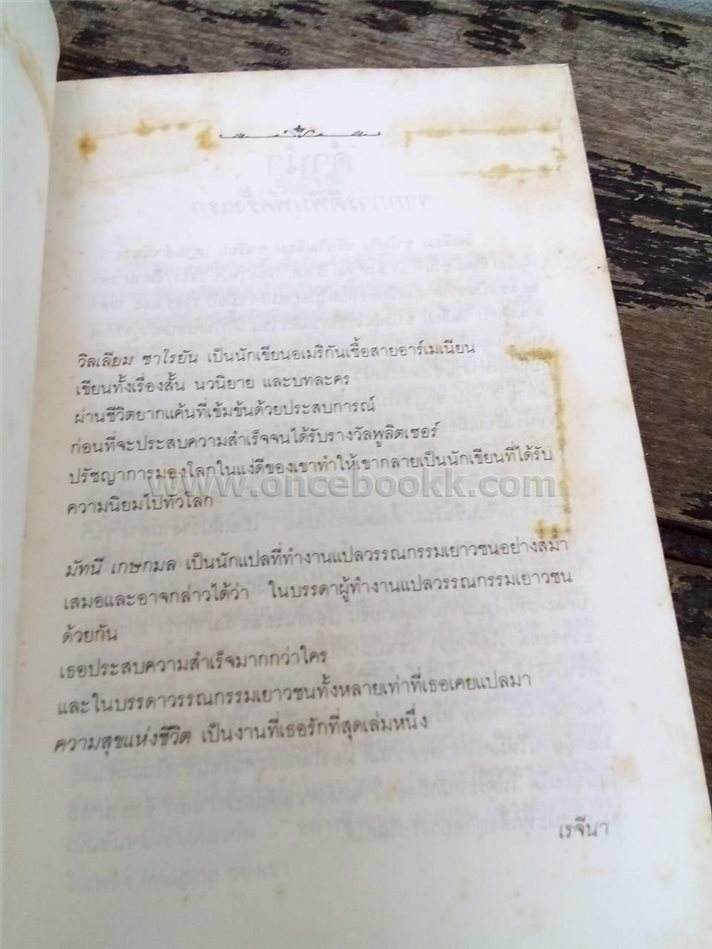 วิลเลียม ซาโรยัน เป็นนักเขียนอเมริกันเชื้อสายอาร์เมเนียน
เขียนทั้งเรื่องสั้น นวนิยาย และบทละคร
ผ่านชีวิตยากแค้นที่เข้มข้นด้วยประสบการณ์
ก่อนที่จะประสบความสำเร็จจนได้รับรางวัลพูลิตเซอร์
ปรัชญาการมองโลกในแง่ดีของเขาทำให้เขากลายเป็นนักเขียนที่ได้รับ
www.oncebookk.com
ความนิยมไปทั่วโลก
มัทนี เกษกมล เป็นนักแปลที่ทำงานแปลวรรณกรรมเยาวชนอย่างสม่ำ
เสมอและอาจกล่าวได้ว่า ในบรรดาผู้ทำงานแปลวรรณกรรมเยาวชน
ด้วยกัน
เธอประสบความสำเร็จมากกว่าใคร
และในบรรดาวรรณกรรมเยาวชนทั้งหลายเท่าที่เธอเคยแปลมา
ความสุขแห่งชีวิต เป็นงานที่เธอรักที่สุดเล่มหนึ่ง
เรจีนา